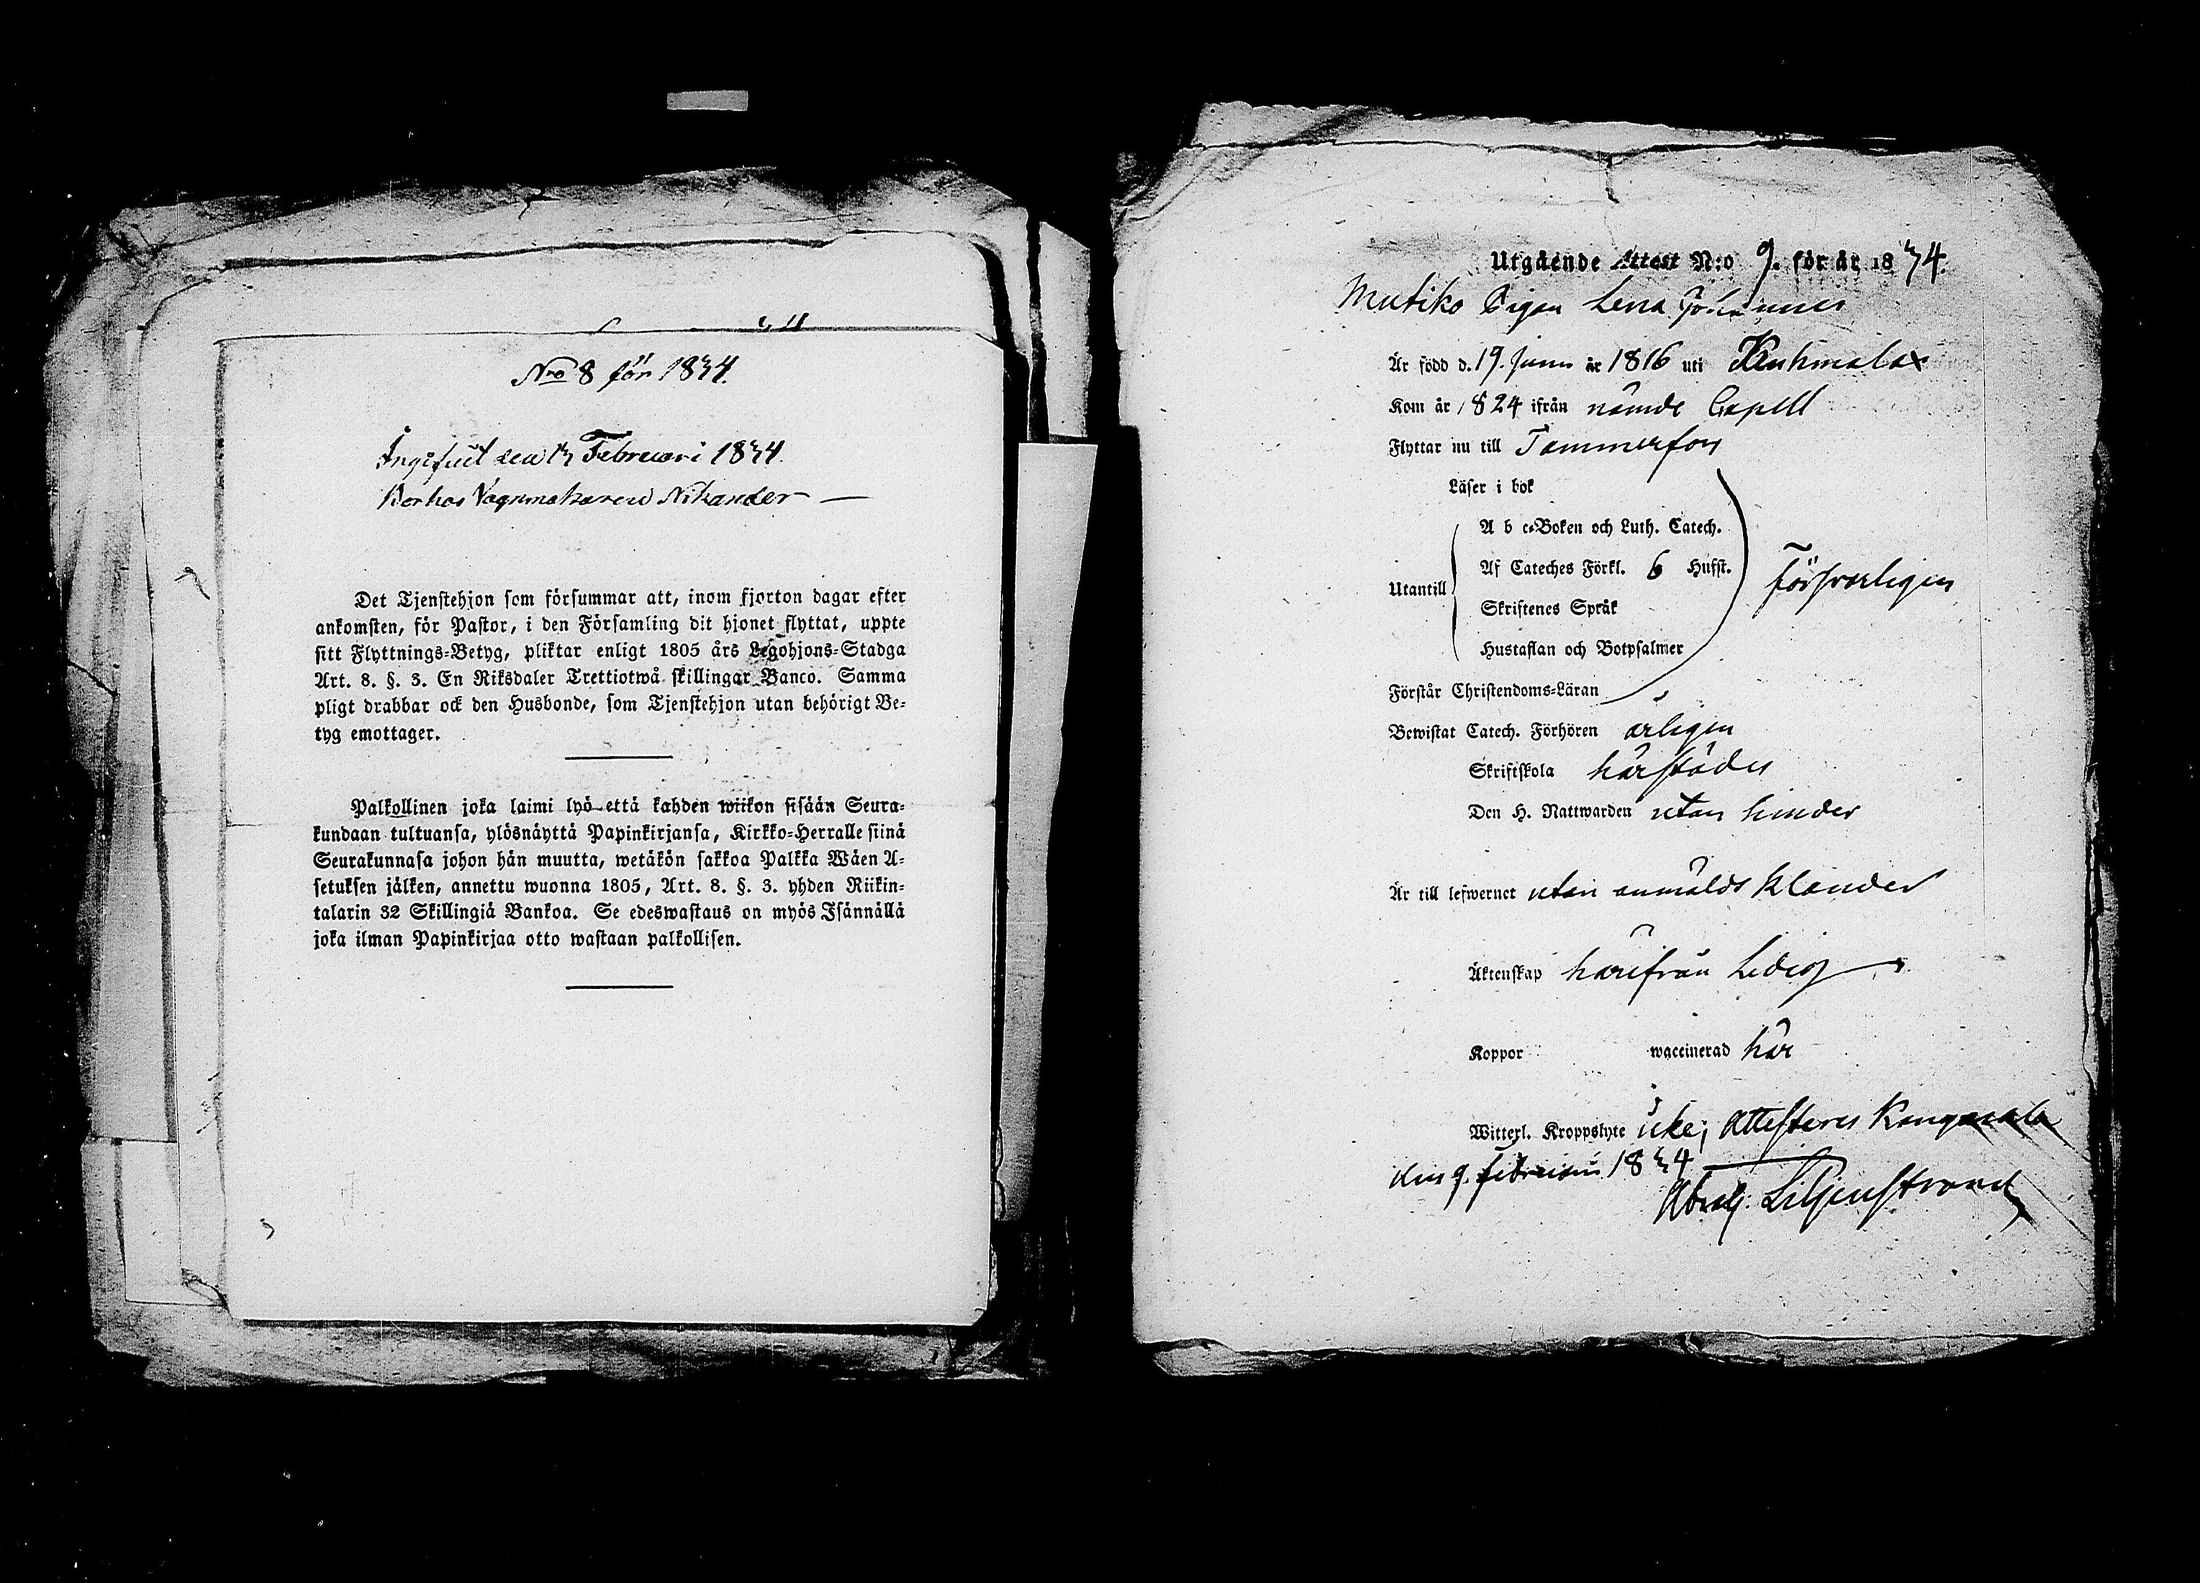 Nro 8 för 1834.
Ingifvit den 13 Februari 1834.
Bor hos Vagnmakaren Nikander
Det Tjenstehjon som försummar att, inom fjorton dagar efter
ankomsten, för Pastor, i den Församling dit hjonet flyttat, uppte
sitt Flyttnings-Betyg, pliktar enligt 1805 års Legohjons-Stadga
Art. 8. §. 3. En Riksdaler Trettiotwå skillingar Banco. Samma
pligt drabbar ock den Husbonde, som Tjenstehjon utan behörigt Be-
tyg emottager.
Palkollinen joka laimi lyö että kahden wiikon sisään Seura-
kundaan tultuansa, ylösnäyttä Papinkirjansa, Kirkko-Herralle siinä
Seurakunnasa johon hän muutta, wetäkön sakkoa Palkka Wäen A-
setuksen jälken, annettu wuonna 1805, Art. 8. §. 3. yhden Riikin-
talarin 32 Skillingiä Bankoa. Se edeswastaus on myös Isännällä
joka ilman Papinkirjaa otto wastaan palkollisen.
Utgående Attest N:o 9. för år 1834.
Mutiko Pigan Lena Johannes
Är född d. 19. Junii år 1816 uti Kuhmalax
Kom år 1824 ifrån nämde Capell
Flyttar nu till Tammerfors
Läser i bok
A b c-Boken och Luth. Catech.
Utantill Af Cateches Förkl. 6 Hufst. Försvarligen
Skriftenes Språk
Hustaflan och Botpsalmer
Förstår Christendoms-Läran
Bewistat Catech. Förhören årligen
Skriftskola härstädes
Den H. Nattwarden utan hinder
Är till lefwernet utan anmäldt klander
Äktenskap härifrån Ledig
Koppor waccinerad här
Witterl. Kroppslyte icke; Attesteras Kangasala
den 9. februarii 1834
Abrah. Liljenstrand